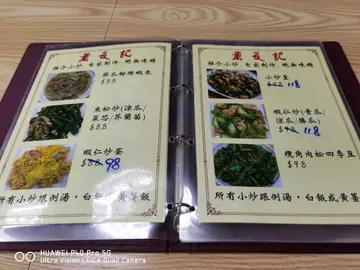 推介小炒 自家制作 絕無味精
節瓜粉絲蝦米
$88
魚松炒(涼瓜/
菜芯/芥蘭苗)
$88
蝦仁炒蛋
$88 98
所有小炒跟例湯,白飯
推介小炒 自家制作 絕無味精
小炒皇
118
蝦仁炒(青瓜/
涼瓜/勝瓜)
118
欖角肉松四季豆
$98
所有小炒跟例湯,白飯或黃薑
HUAWEI P40 Pro 5G
Ultra Vision LEICA Quad Camera